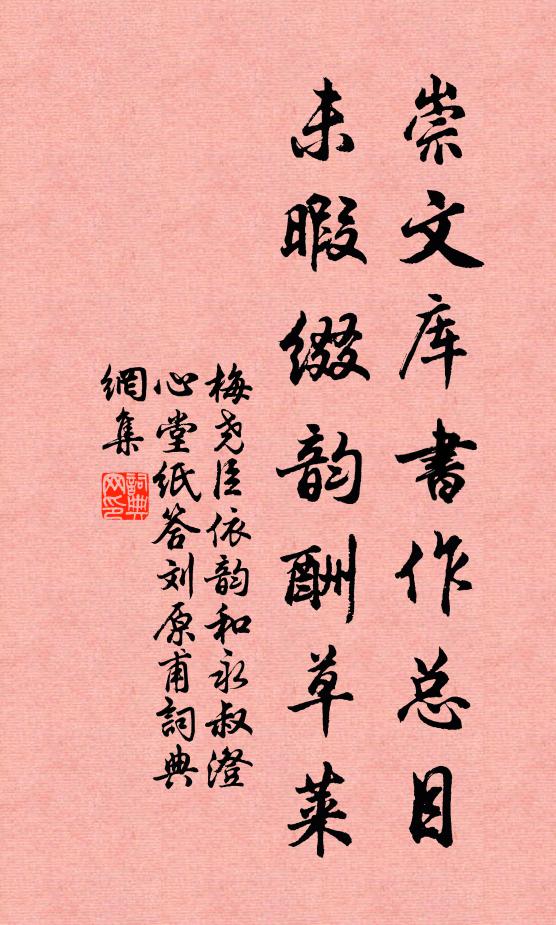 崇文库書作总目
未暇缀韵酬草莱
梅尧臣依韵和永叔澄
心堂纸答刘原甫詞典
網集
詞典
网印